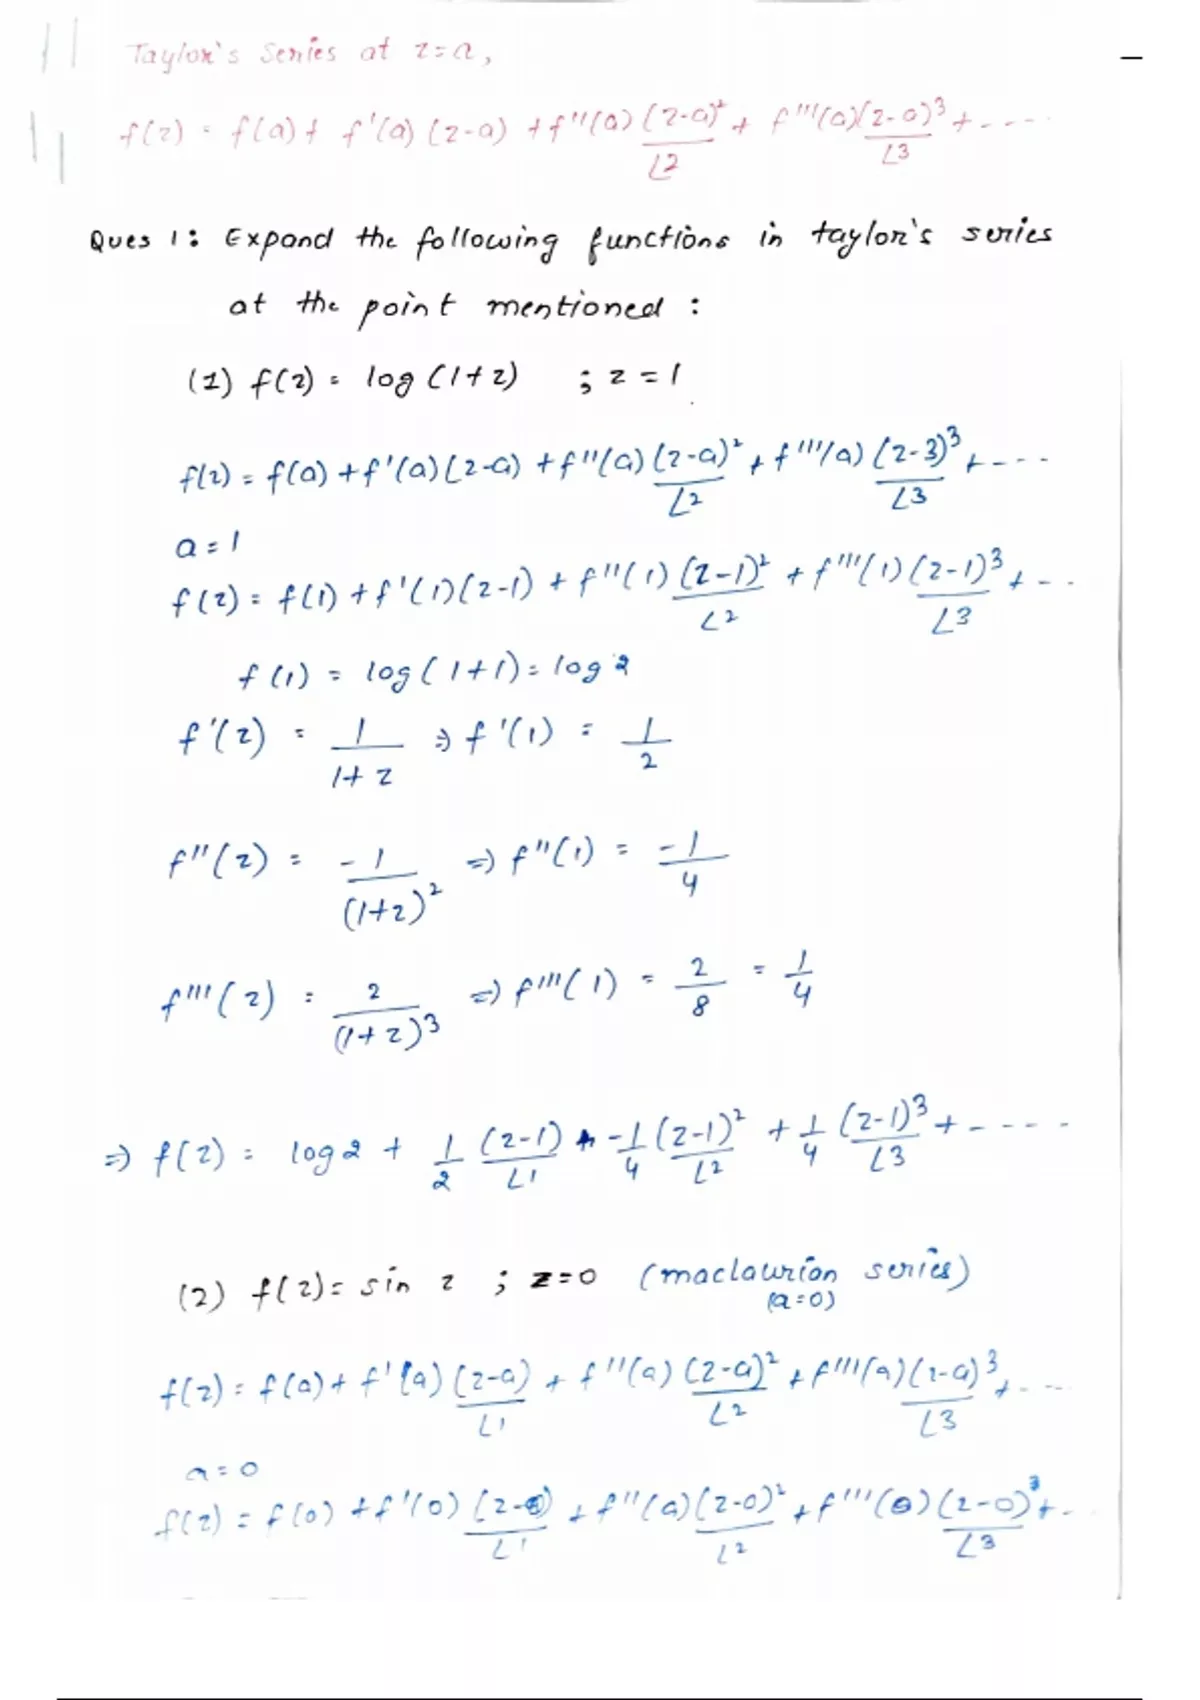 Taylor's Series at z=a,
f(z) = f(a) + f'(a) (z-a) + f''(a) (z-a)²/∠2 + f'''(a)(z-a)³/∠3 + ....
Ques 1: Expand the following functions in taylor's series
at the point mentioned :
(1) f(z) = log (1+z) ; z = 1
f(z) = f(a) + f'(a) (z-a) + f''(a) (z-a)²/∠2 + f'''(a) (z-3)³/∠3 + ....
a = 1
f(z) = f(1) + f'(1) (z-1) + f''(1) (z-1)²/∠2 + f'''(1) (z-1)³/∠3 + ...
f(1) = log(1+1) = log 2
f'(z) = 1/(1+z) ⇒ f'(1) = 1/2
f''(z) = -1/(1+z)² ⇒ f''(1) = -1/4
f'''(z) = 2/(1+z)³ ⇒ f'''(1) = 2/8 = 1/4
⇒ f(z) = log 2 + 1/2 (z-1)/∠1 + -1/4 (z-1)²/∠2 + 1/4 (z-1)³/∠3 + .....
(2) f(z) = sin z ; z=0 (maclaurian series)
(a=0)
f(z) = f(a) + f'(a) (z-a)/∠1 + f''(a) (z-a)²/∠2 + f'''(a) (z-a)³/∠3 + ....
a = 0
f(z) = f(0) + f'(0) (z-0)/∠1 + f''(a) (z-0)²/∠2 + f'''(0) (z-0)³/∠3 + ..